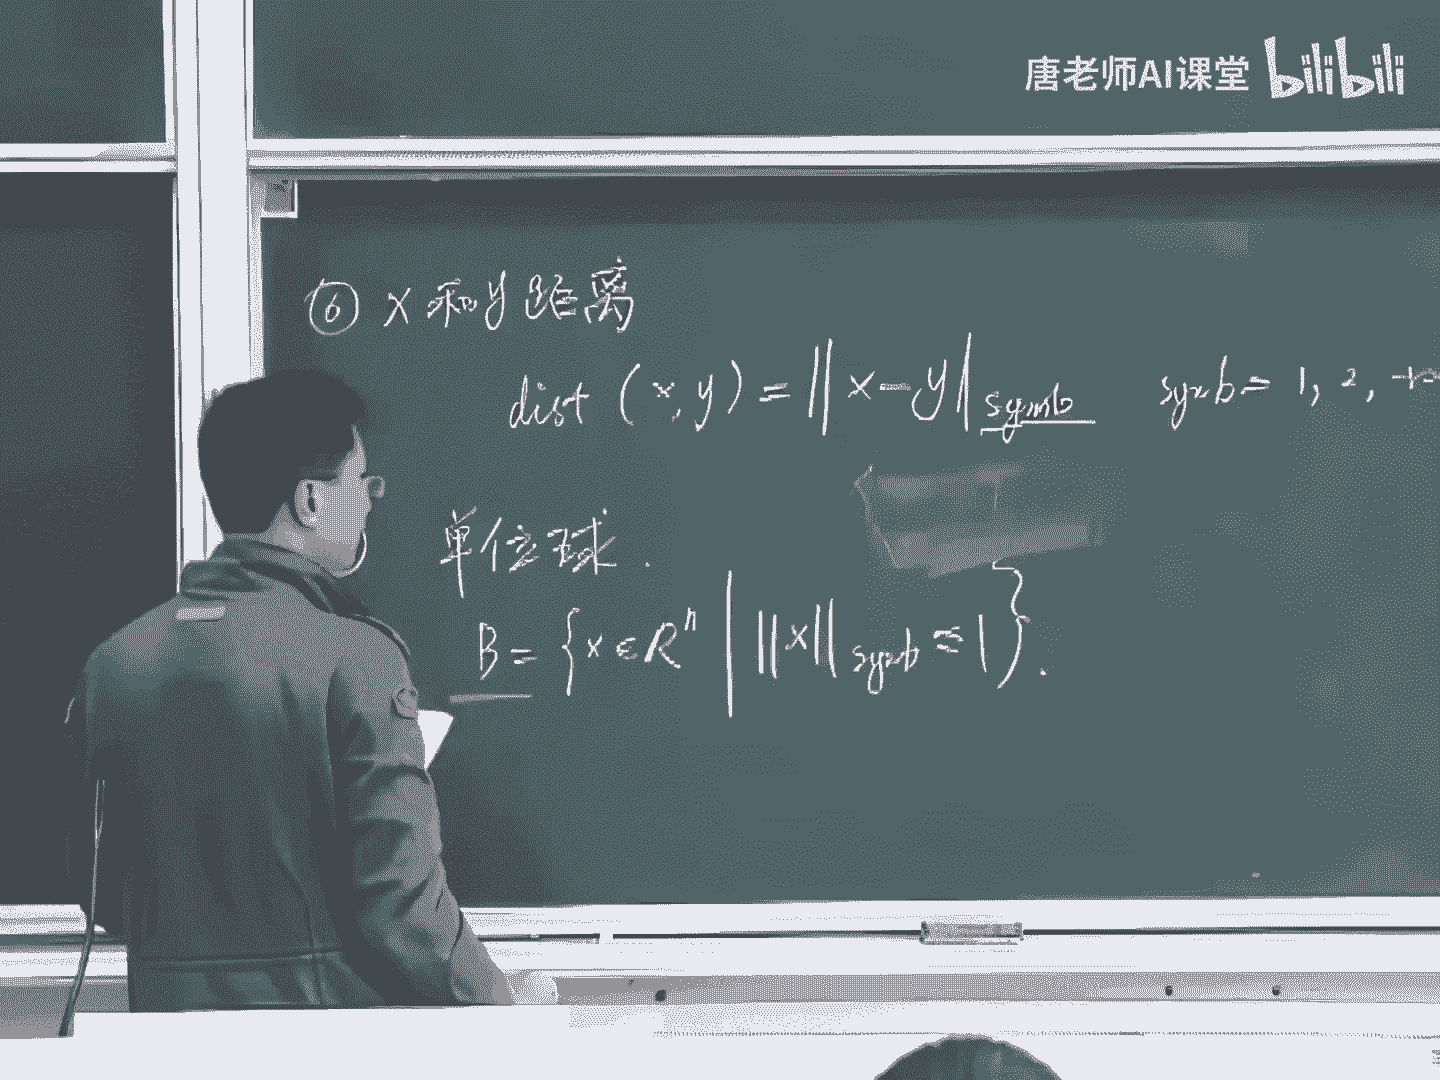 唐老师AI课堂 bilibili
⑥ x 和 y 距离
dist (x, y) = ||x-y||symb symb = 1, 2, +∞
单位球.
B = {x ∈ Rⁿ | ||x||symb ≤ 1}.